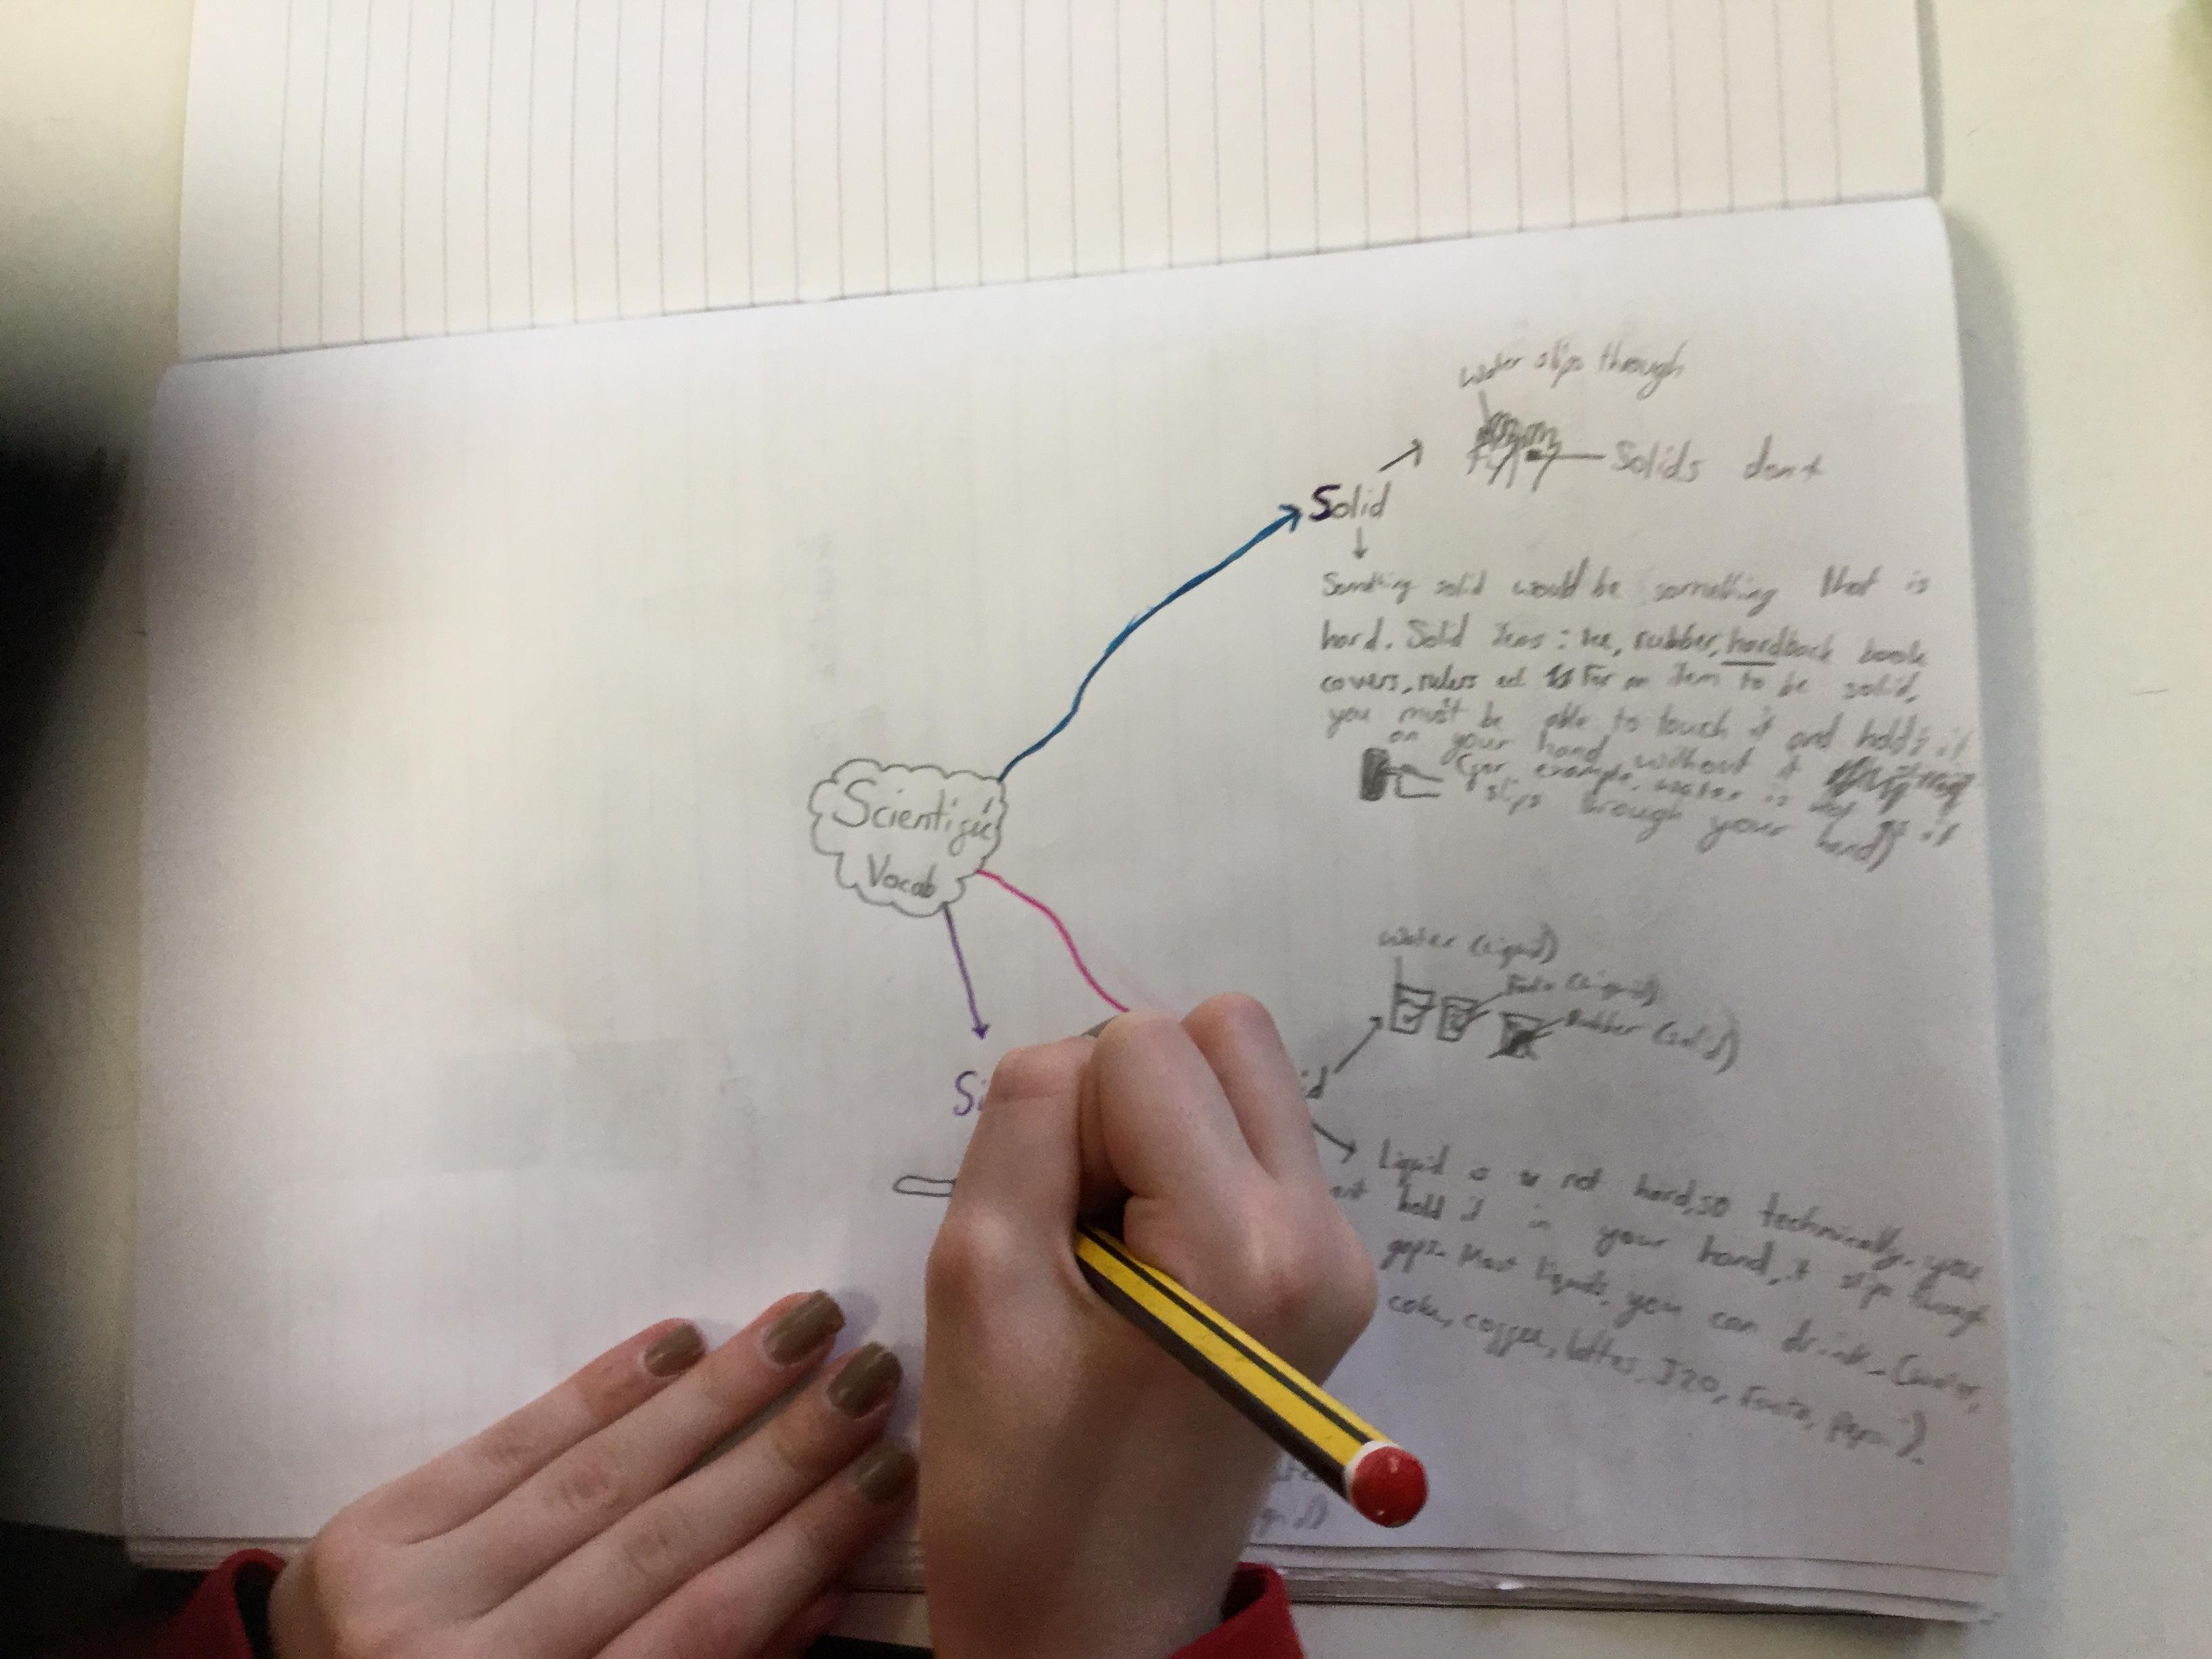 Water slips through
Solids dont
Solid
Something solid would be something that is
hard. Solid items: Ice, rubber, hardback book
covers, rulers ect. For an item to be solid,
you must be able to touch it and hold it
on your hand without it
(for example, water is not as it
slips through your hand)
Scientific
Vocab
Water (liquid)
Fanta (liquid)
Rubber (solid)
Si
id
Liquid is not hard, so technically, you
hold it in your hand, it slip through
gaps. Most liquids, you can drink. (water,
coke, coffee, lattes, J20, Fanta, pepsi).